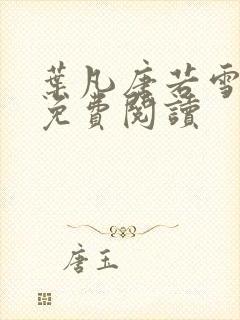 葉凡唐若雪
免費閱讀
唐玉